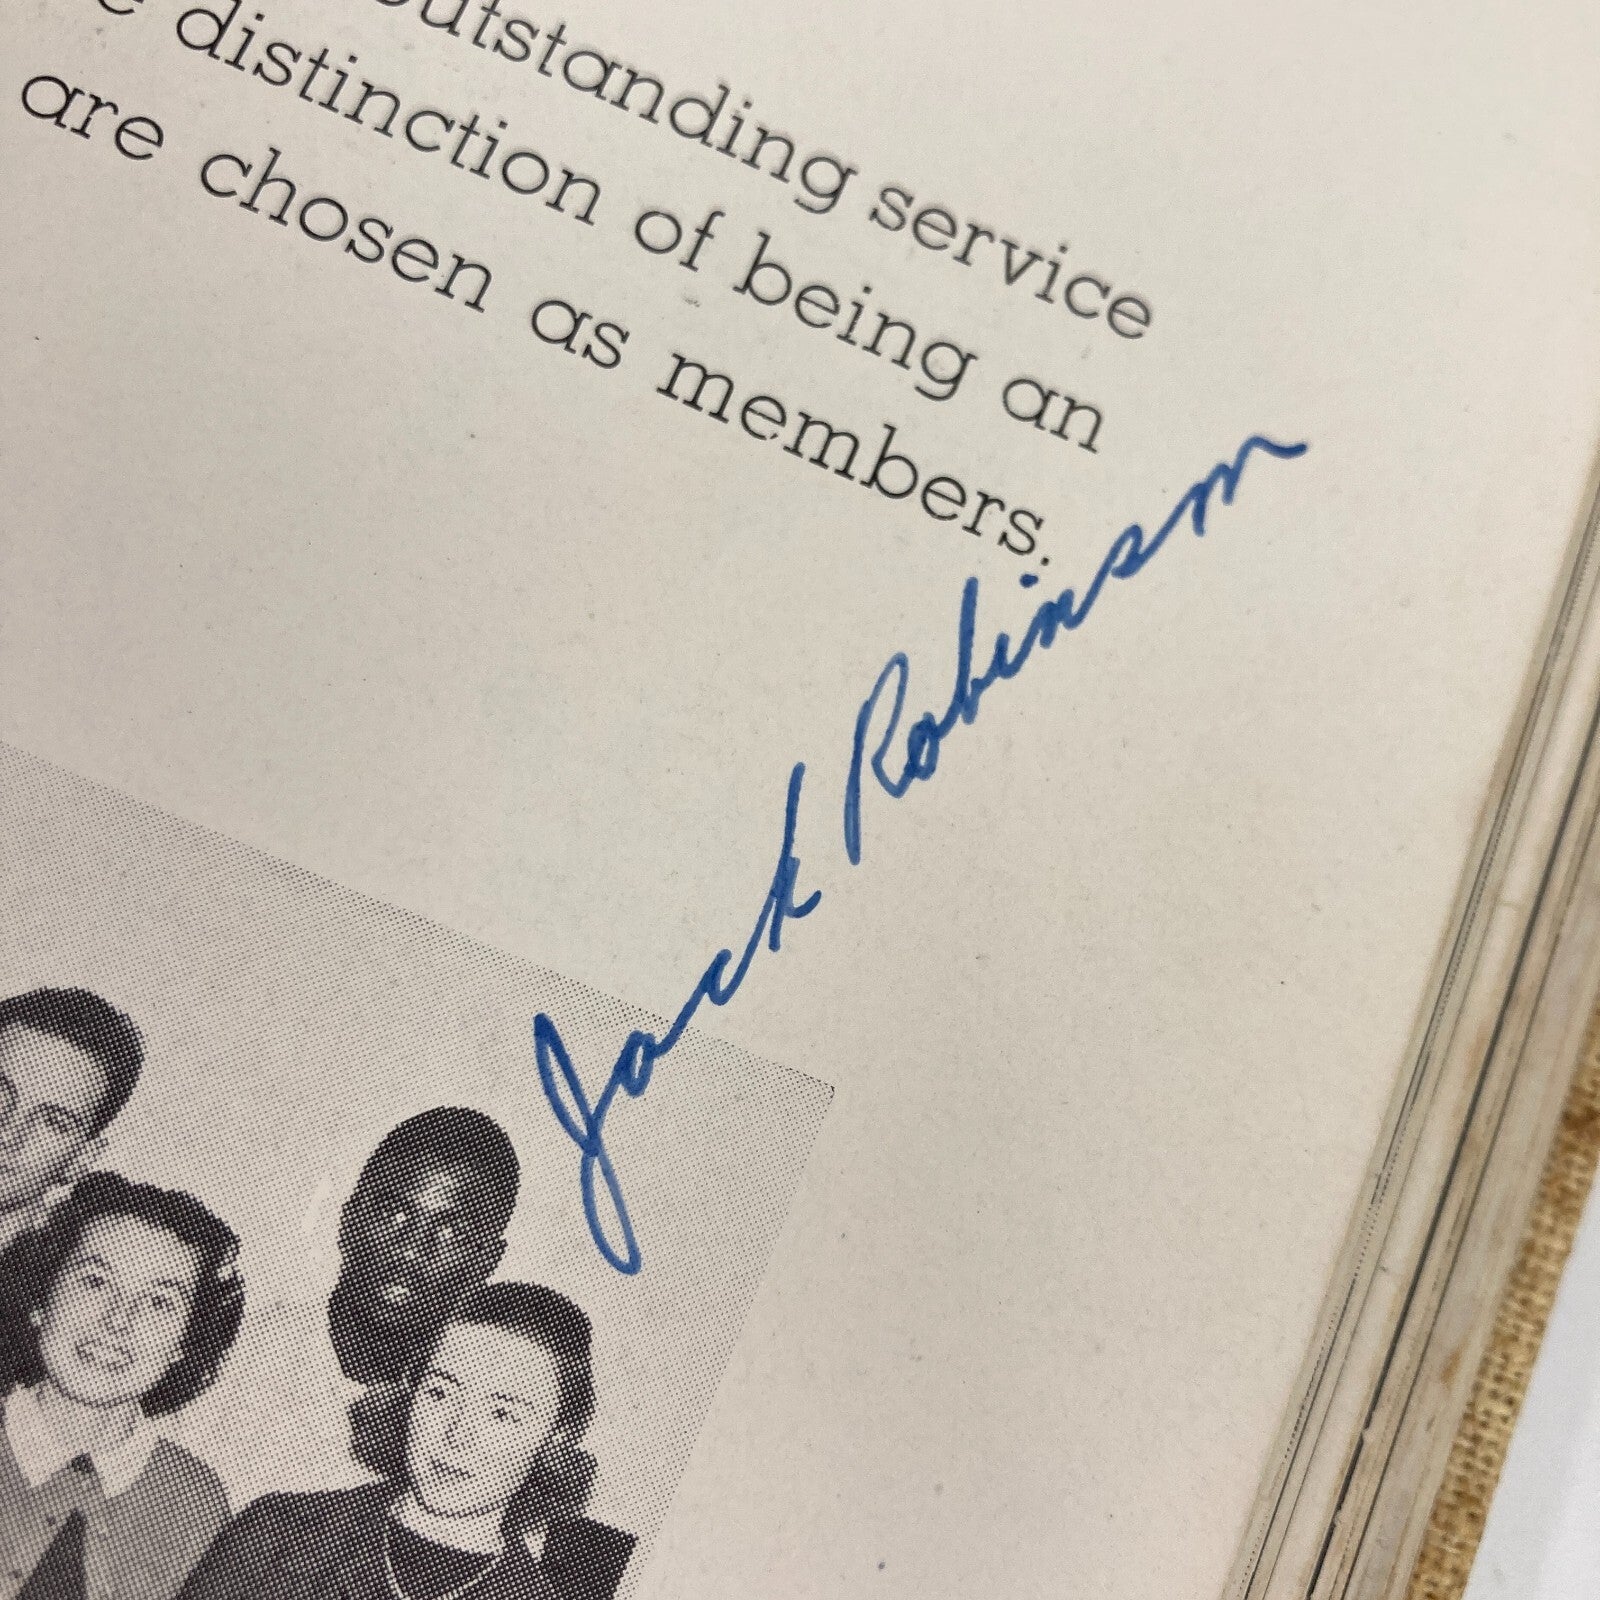 outstanding service
distinction of being an
are chosen as members.
Jack Robinson